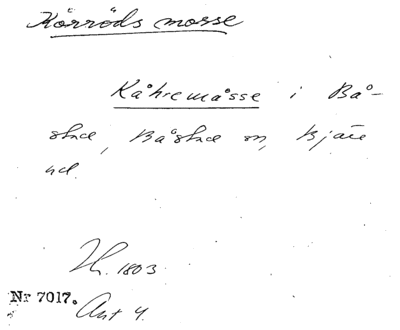 Körröds mosse
Kåhremåsse i Bå-
stad, Båstad sn, Bjäre
hd.
Th. 1803
Nr 7017.
Ant 4.